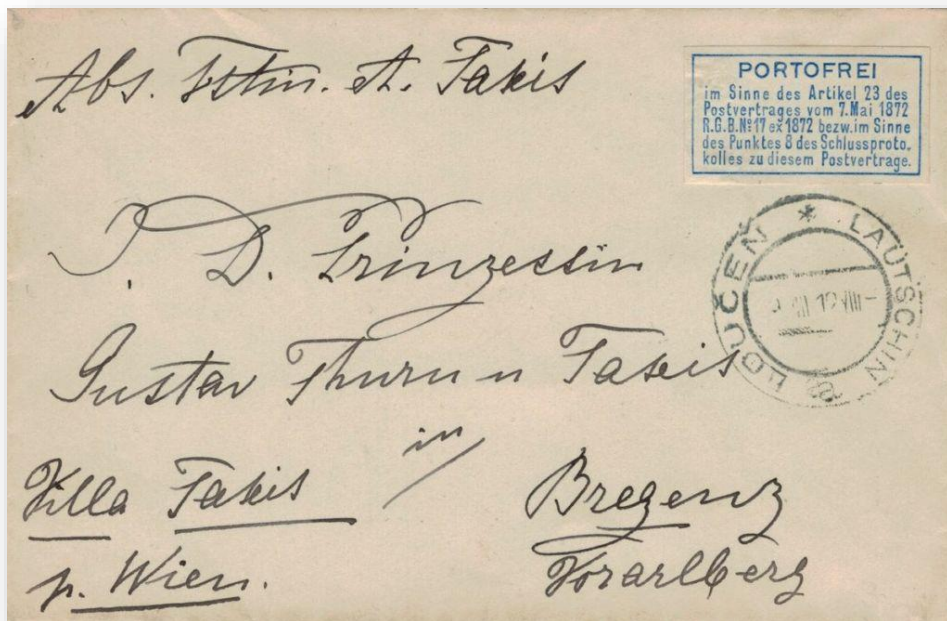 Abs. Fstin. A. Taxis
PORTOFREI
im Sinne des Artikel 23 des
Postvertrages vom 7. Mai 1872
R.G.B. Nº 17 ex 1872 bezw. im Sinne
des Punktes 8 des Schlussproto-
kolles zu diesem Postvertrage.
LOUČEN * LAUTSCHIN
I. D. Prinzessin
Gustav Thurn u Taxis
in
Villa Taxis
Bregenz
p. Wien.
Vorarlberg